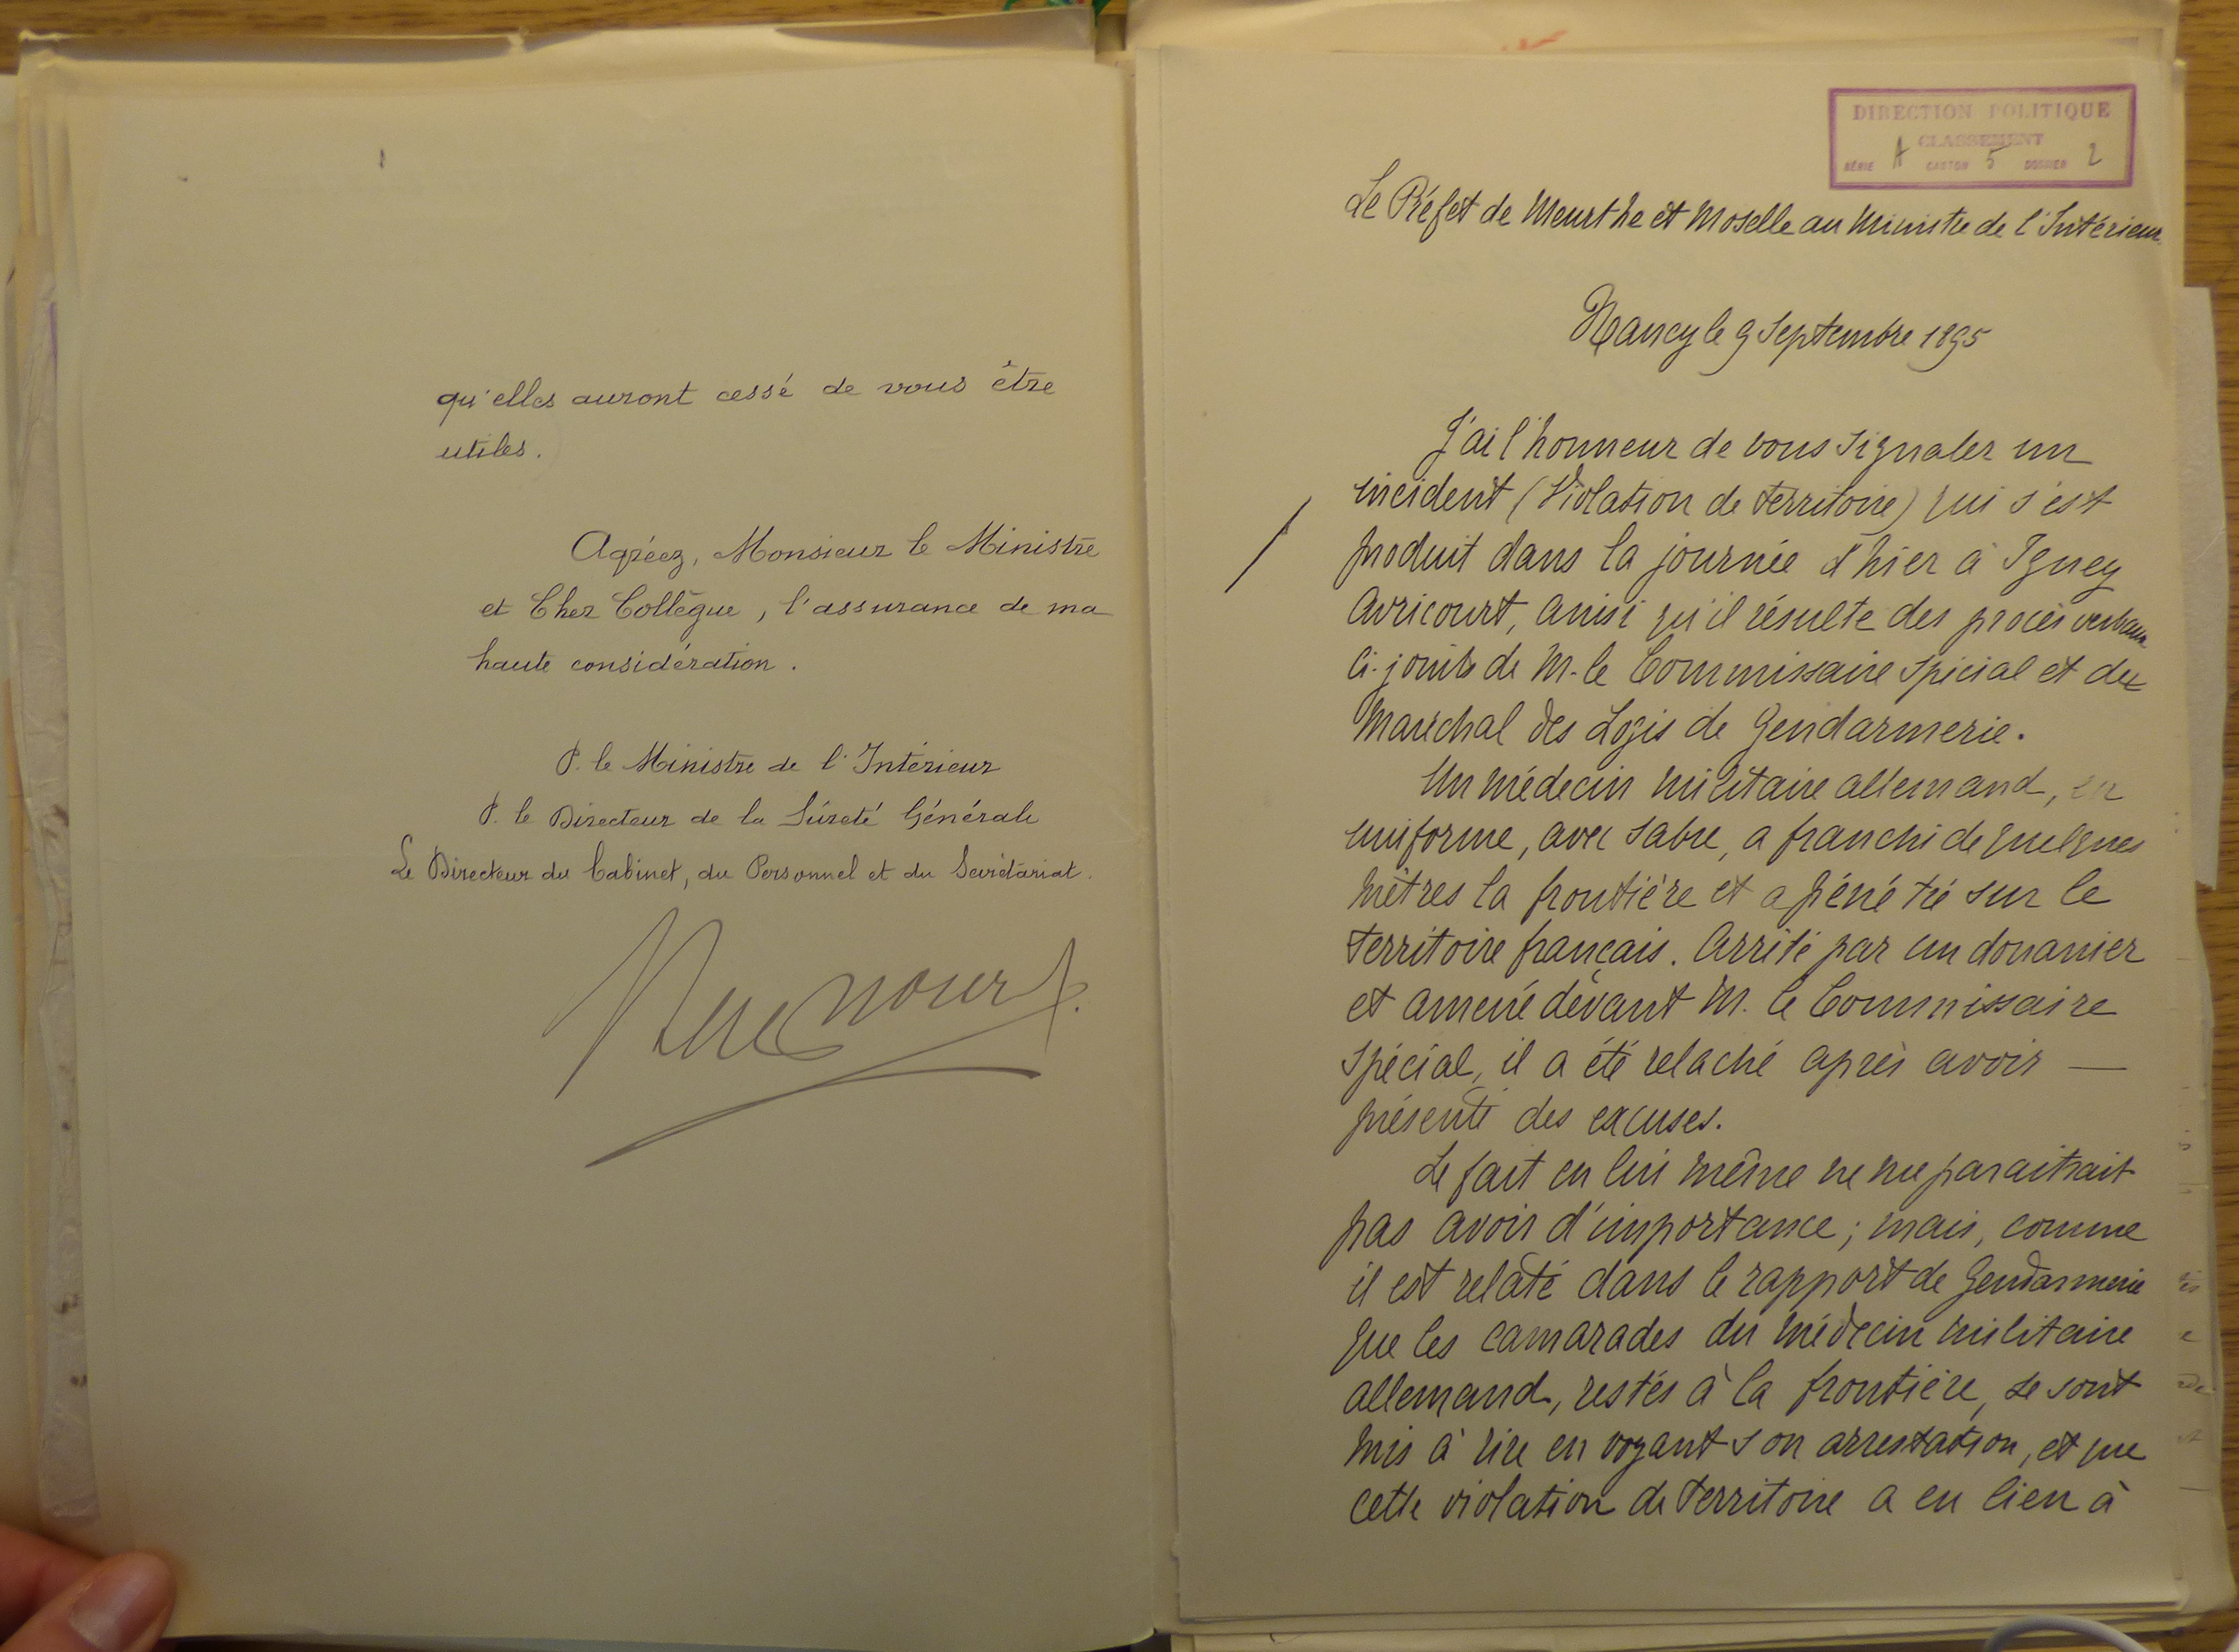 qu'elles auront cessé de vous être
utiles.
Agréez, Monsieur le Ministre
et Cher Collègue, l'assurance de ma
haute considération.
P. le Ministre de l'Intérieur
P. le Directeur de la Sûreté Générale
Le Directeur du Cabinet, du Personnel et du Secrétariat.
DIRECTION POLITIQUE
CLASSEMENT
SÉRIE A CARTON 5 DOSSIER 2
Le Préfet de Meurthe et Moselle au Ministre de l'Intérieur.
Nancy le 9 Septembre 1895
J'ai l'honneur de vous signaler un
incident (Violation de territoire) qui s'est
produit dans la journée d'hier à Igney
Avricourt, ainsi qu'il résulte des procès verbaux
ci-joints de M. le Commissaire spécial et du
Maréchal des Logis de Gendarmerie.
Un médecin militaire allemand, en
uniforme, avec sabre, a franchi de quelques
mètres la frontière et a pénétré sur le
territoire français. Arrêté par un douanier
et amené devant M. le Commissaire
spécial, il a été relaché après avoir —
présenté des excuses.
Le fait en lui même ne me paraitrait
pas avoir d'importance; mais, comme
il est relaté dans le rapport de Gendarmerie
que les camarades du médecin militaire
allemand, restés à la frontière, se sont
mis à rire en voyant son arrestation, et que
cette violation de territoire a eu lieu à